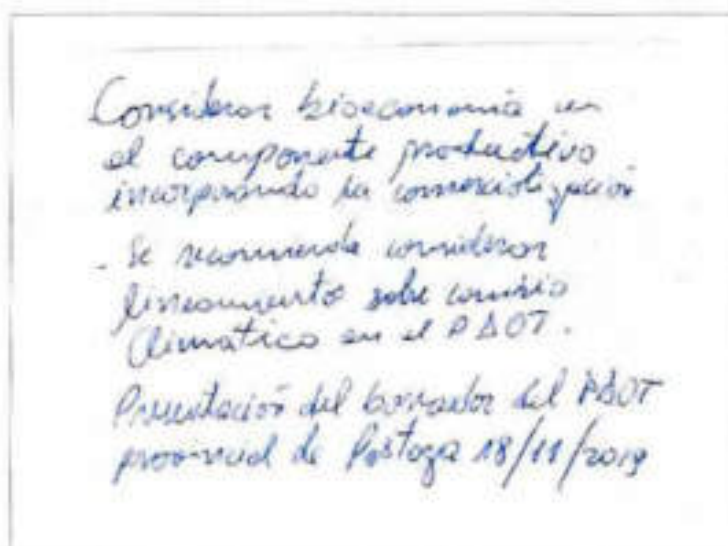 Considerar bioeconomia en
el componente productivo
incorporando la comercialización
- Se recomienda considerar
lineamiento sobre cambio
climatico en el PDOT.
Presentación del borrador del PDOT
provincial de Pastaza 18/11/2019